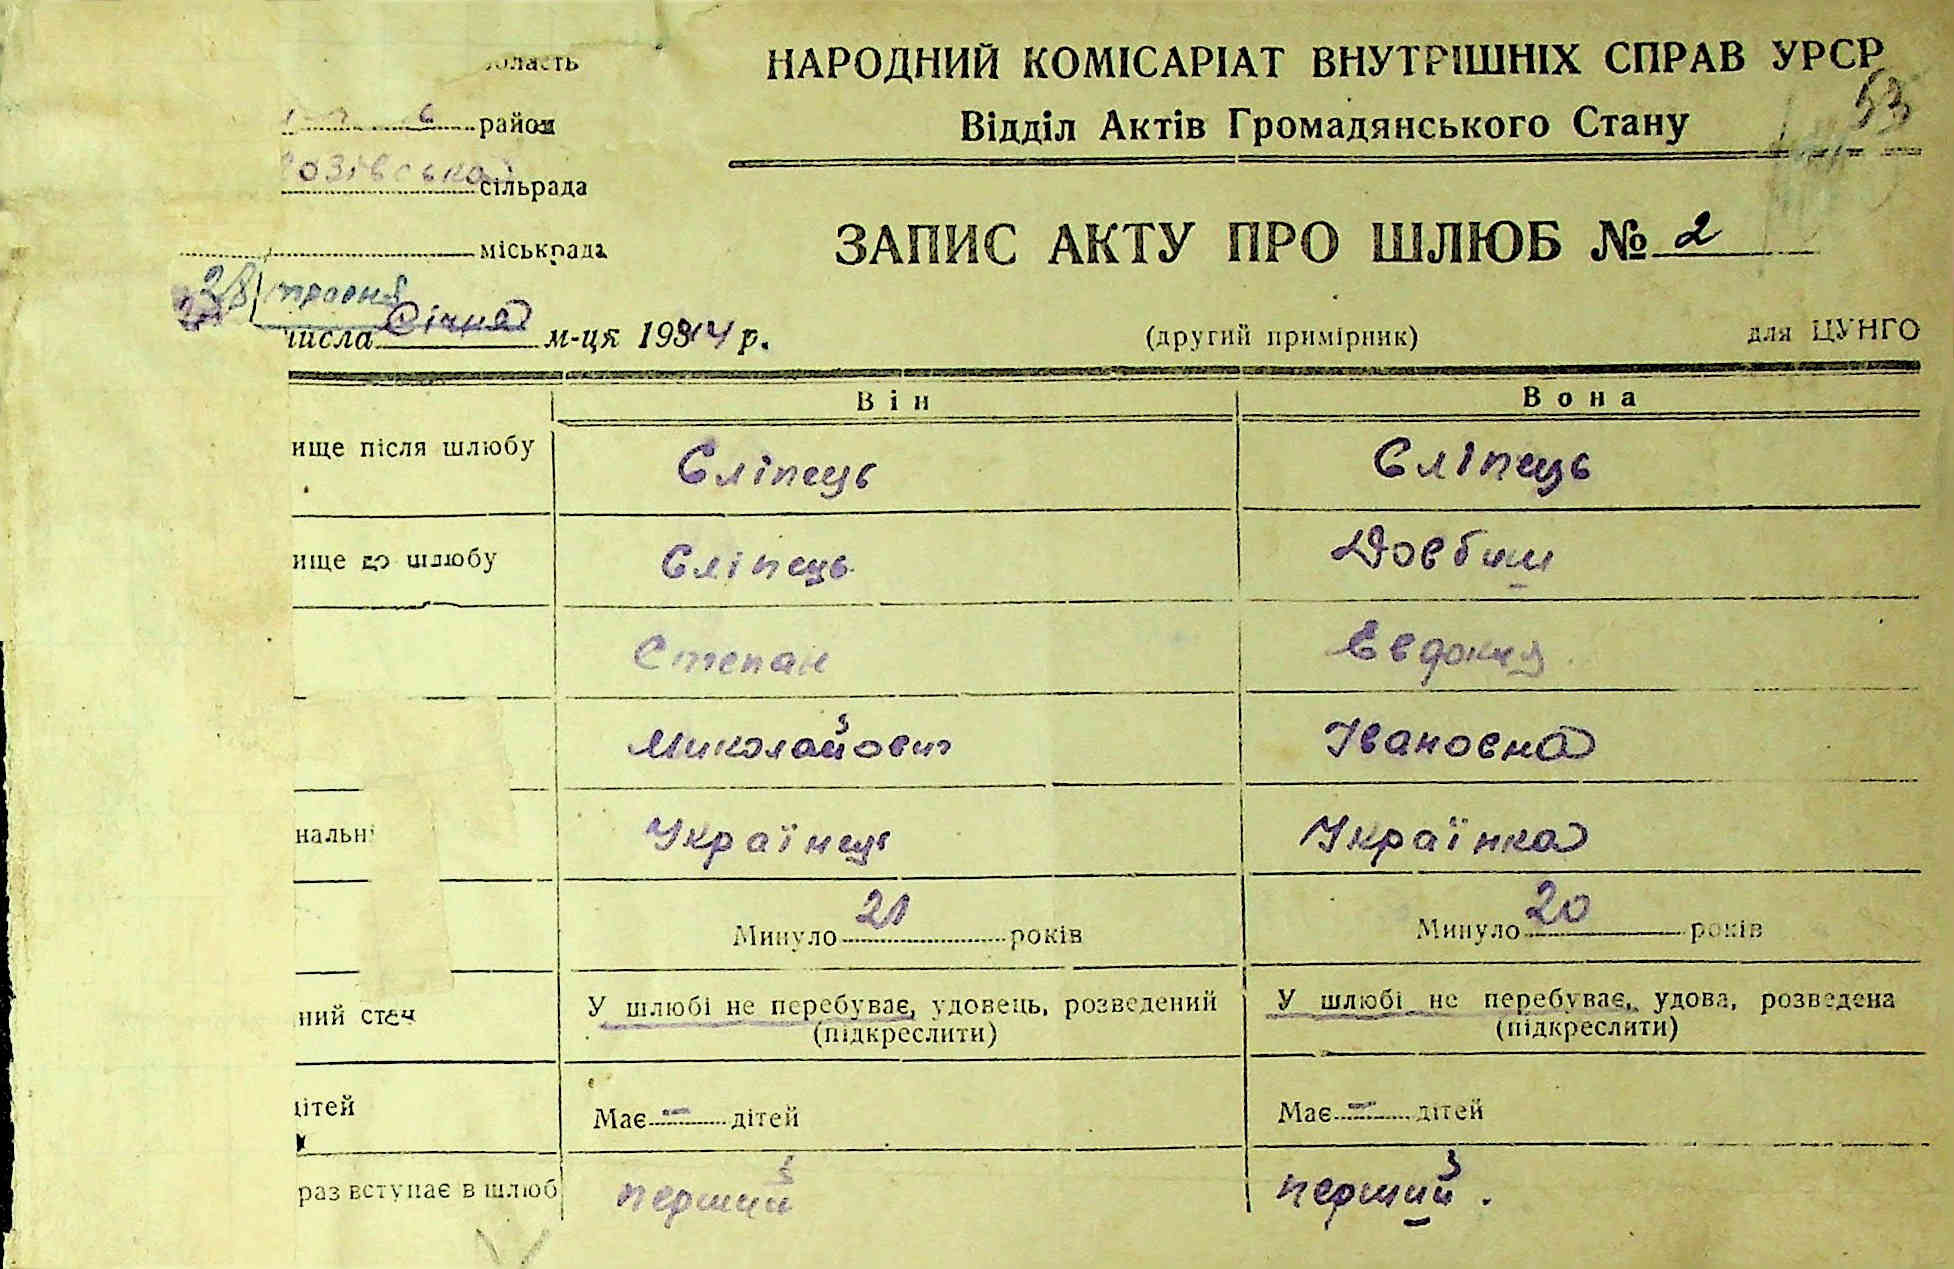 НАРОДНИЙ КОМІСАРІАТ ВНУТРІШНІХ СПРАВ УРСР
Відділ Актів Громадянського Стану
53
область
район
озівська сільрада
міськрада
ЗАПИС АКТУ ПРО ШЛЮБ № 2
28 травня
числа Січня м-ця 1944 р.
(другий примірник)
для ЦУНГО
Він Вона
ище після шлюбу Сліпець Сліпець
ище до шлюбу Сліпець Довбиш
Степан Евдокия
Миколайович Івановна
нальні Українець Українка
Минуло 21 років Минуло 20 років
ний стан У шлюбі не перебуває, удовець, розведений У шлюбі не перебуває, удова, розведена
(підкреслити) (підкреслити)
дітей Має — дітей Має — дітей
раз вступає в шлюб перший перший.